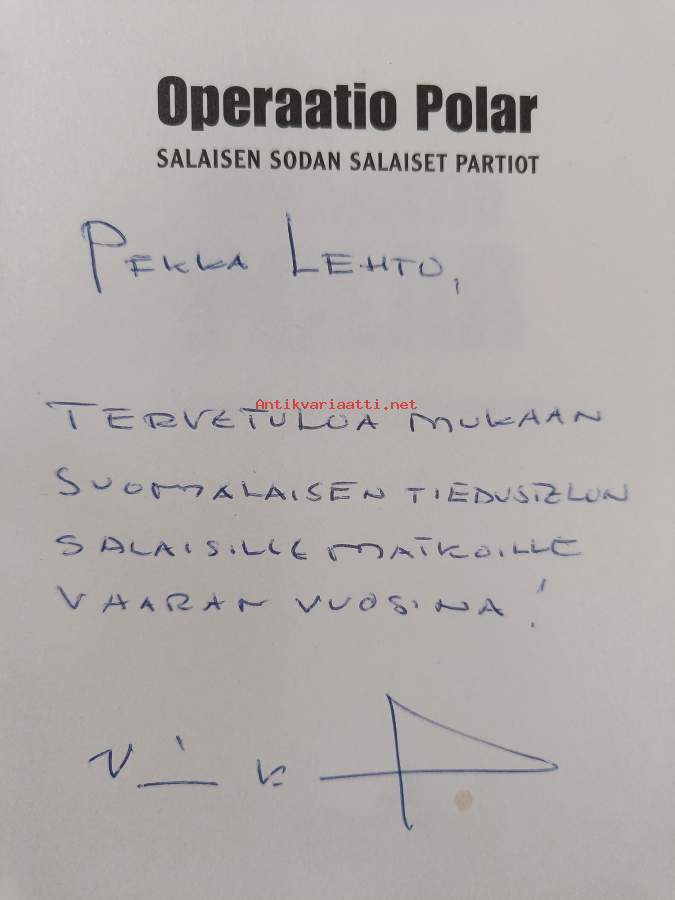 Operaatio Polar
SALAISEN SODAN SALAISET PARTIOT
PEKKA LEHTO,
Antikvariaatti.net
TERVETULOA MUKAAN
SUOMALAISEN TIEDUSTELUN
SALAISILLE MATKOILLE
VAARAN VUOSINA!